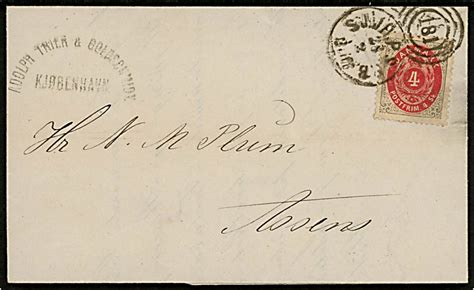 ADOLPH TRIER & GOLDSCHMIDT
KJØBENHAVN
181
4
POSTFRIM
Hr N. M Plum
Assens